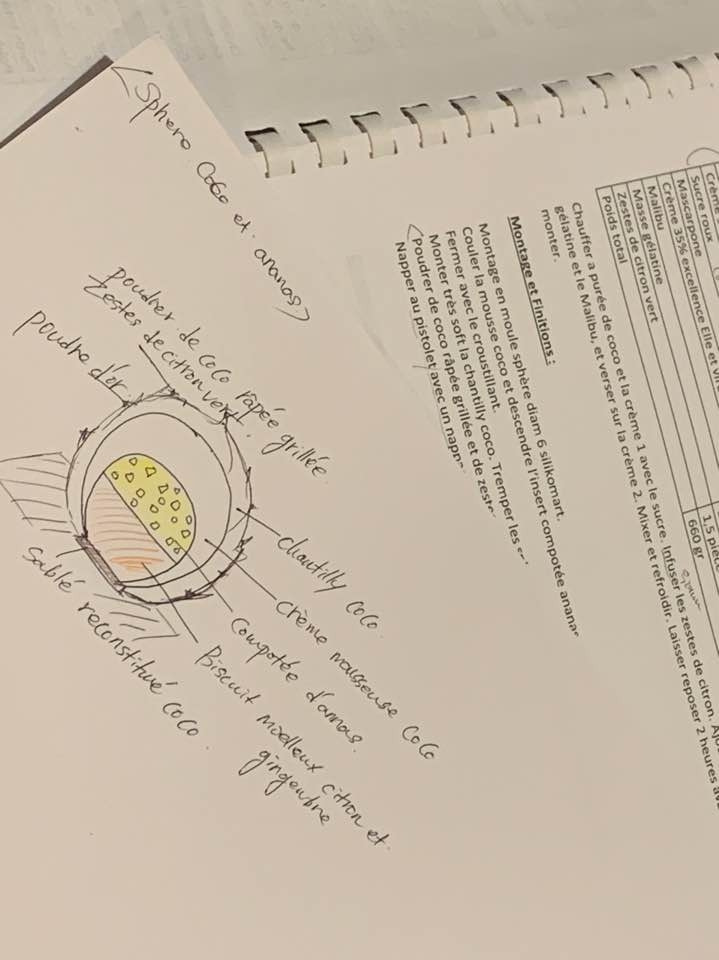 < Sphere Coco et ananas >
poudrer de coco râpée grillée
zestes de citron vert.
poudre d'or
chantilly coco
crème mousseuse coco
compotée d'annas.
Biscuit moelleux citron et
gingembre
Sablé reconstitué coco.
Crème
Sucre roux
Mascarpone
Crème 35% excellence Elle et Vi
Malibu
Masse gélatine
Zestes de citron vert 1,5 pièce
Poids total 660 gr
Chauffer a purée de coco et la crème 1 avec le sucre. Infuser les zestes de citron. Ajou
gélatine et le Malibu, et verser sur la crème 2. Mixer et refroidir. Laisser reposer 2 heures ava
monter.
Montage et Finitions :
Montage en moule sphère diam 6 silikomart.
Couler la mousse coco et descendre l'insert compotée anana
Fermer avec le croustillant.
Monter très soft la chantilly coco. Tremper les
Poudrer de coco râpée grillée et de zeste
Napper au pistolet avec un napp